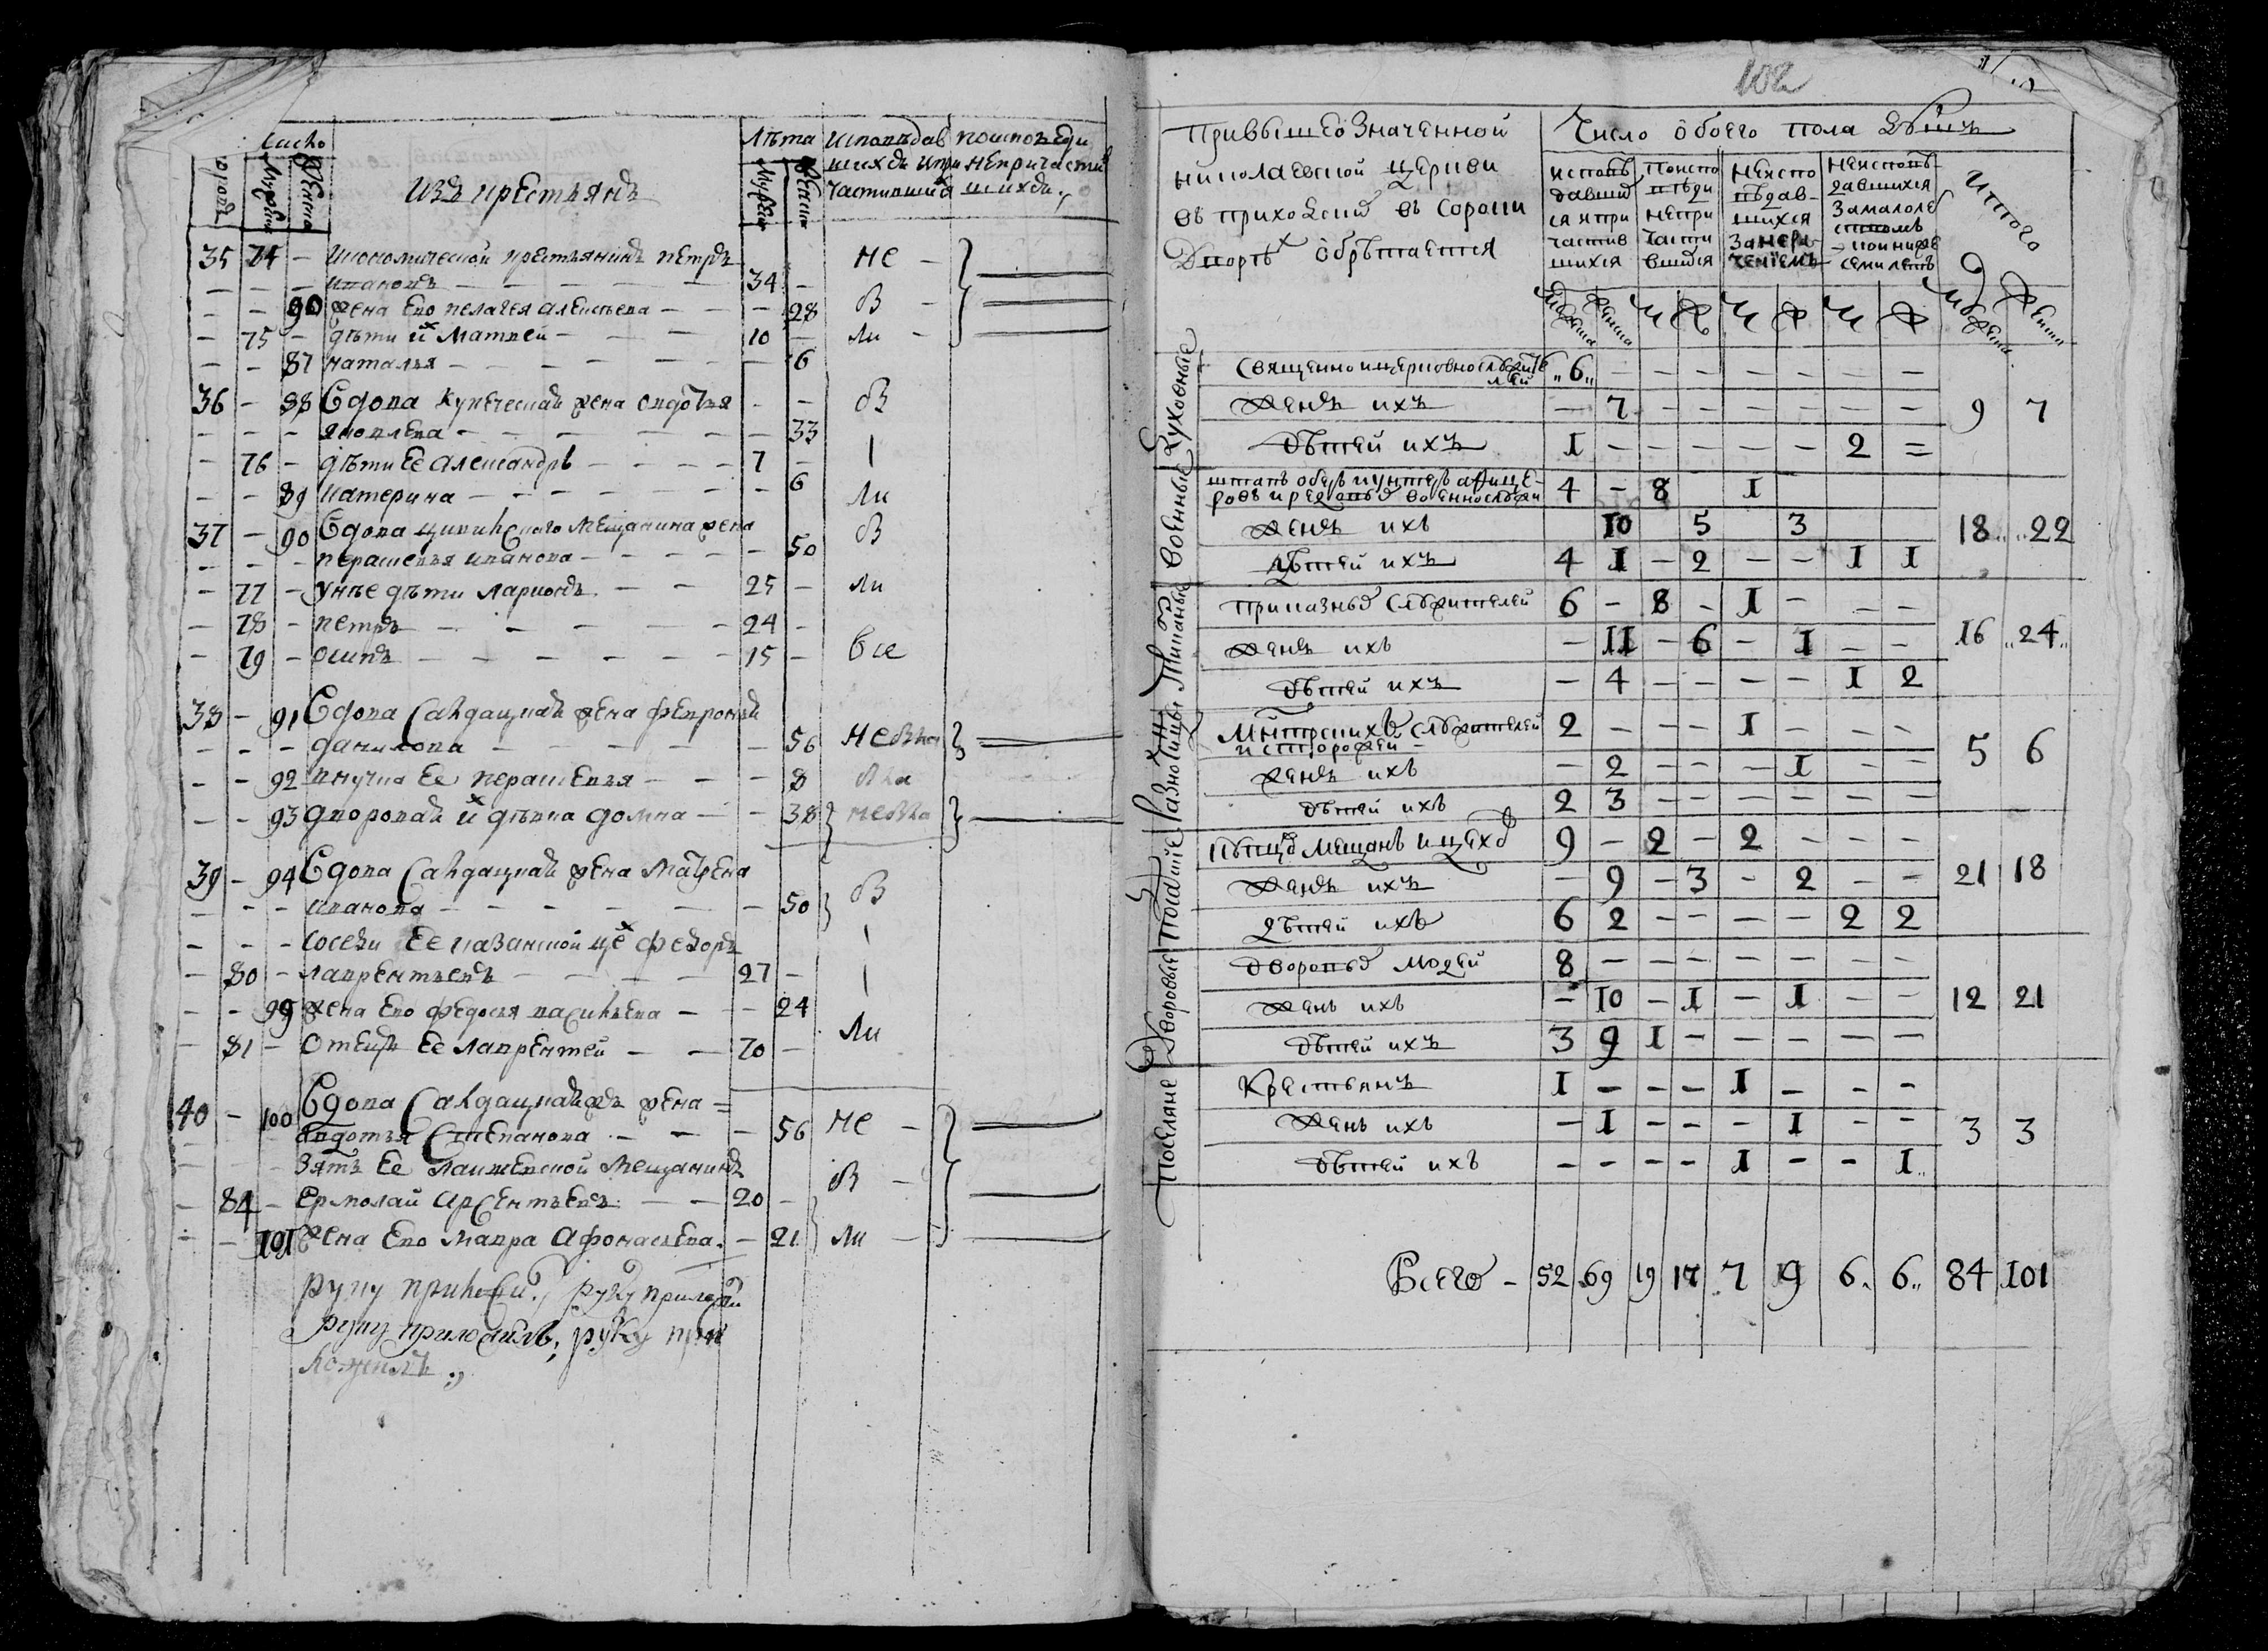 число
дворовъ
Мужеска
Женска
изъ крестьянъ
Лѣта
Мужеск
Женски
исповѣдав
шихся и при
частившихся
по исповеди
не причасти
шихся
35 74 – икономической крестьянинъ петръ
ивановъ 34 – не
– – 90 жена ево пелагея алексѣева – 28 в
– 75 – дѣти их Матвей 10 – ли
– – 87 наталья – 6
36 – 88 Вдова купеческая жена авдотья – – в
яковлева – 33
– 76 – дѣти ее александръ 7 –
– – 89 катерина – 6 ли
37 – 90 Вдова цивилского мещанина жена в
парасковья иванова – 50
– 77 – у нее дѣти ларионъ 25 – ли
– 78 – петръ 24 –
– 79 – осипъ 15 – все
38 – 91 Вдова салдацкая жена феврония
данилова – 56
– – 92 внучка ее парасковья – 8
– – 93 дворовая их дѣвка домна – 38
39 – 94 Вдова салдацкая жена Матрена
иванова – 50 в
– – – соседи ее казанской це федоръ
– 80 – лаврентьевъ 27 –
– – 99 жена ево федосья васильева – 24
– 81 – отецъ ее лаврентей 70 – ли
40 – 100 Вдова салдацкая жена
авдотья степанова – 56 не
зять ее лаишевской мещанинъ
– 84 – ермолай арсентьевъ 20 – в
– – 101 жена ево мавра афонасьева – 21 ли
руку приложи руку приложи
руку приложилъ, руку при
ложилъ
102
При вышеозначенной
николаевской церкви
въ приходскихъ въ сороки
дворѣхъ обрѣтается
Число обоего пола душъ
исповѣ
давших
ся и при
частив
шихся
По испо
вѣди
непри
части
вшихся
неиспо
вѣдав-
шихся
за нера-
чениемъ
неисповѣ-
давшихся
за малолѣ
тствомъ
– пониже
семи летъ
итого
Мужеска Женска М Ж М Ж М Ж Мужеска Женска
Духовные
священно и церковнослужите
лей 6 – – – – – – –
Женъ ихъ – 7 – – – – – – 9 7
дѣтей ихъ 1 – – – – – 2 =
Военные
штапъ оберъ и унтеръ афице-
ровъ и редовыхъ военнослужи 4 – 8 1
Женъ ихъ 10 5 3 18 22
дѣтей ихъ 4 1 – 2 – – 1 1
Штатные
приказныхъ служителей 6 – 8 – 1 – – –
Женъ ихъ – 11 – 6 – 1 – – 16 24
дѣтей ихъ – 4 – – – – 1 2
Разночинцы
служителей
и сторожей 2 – – – 1 – – –
Женъ ихъ – 2 – – – 1 – – 5 6
дѣтей ихъ 2 3 – – – – – –
Посацкие
купцовъ Мещанъ и цеховъ 9 – 2 – 2 – – –
Женъ ихъ – 9 – 3 – 2 – – 21 18
дѣтей ихъ 6 2 – – – – 2 2
Дворовые
дворовыхъ людей 8 – – – – – – –
Женъ ихъ – 10 – 1 – 1 – – 12 21
дѣтей ихъ 3 9 1 – – – – –
Поселяне
Крестьянъ 1 – – – 1 – – –
Женъ ихъ – 1 – – – 1 – – 3 3
дѣтей ихъ – – – – 1 – – 1
Всего – 52 69 19 17 7 9 6 6 84 101